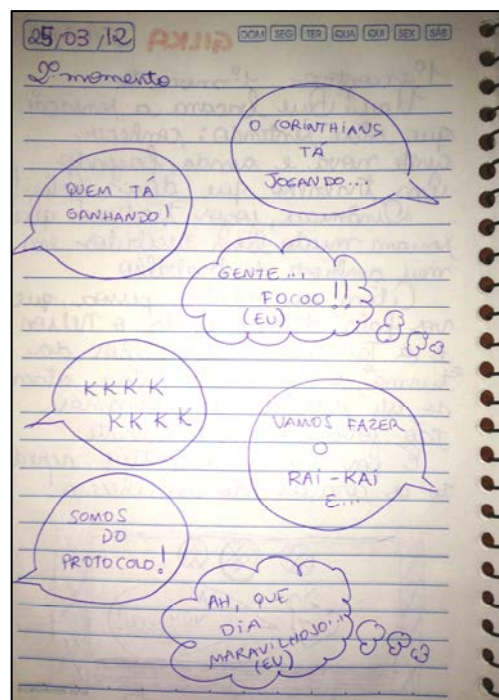 25/03/12
DOM SEG TER QUA QUI SEX SÁB
2º momento
O CORINTHIANS
TÁ
JOGANDO...
QUEM TÁ
GANHANDO!
GENTE...
FOCOO!!
(EU)
KKKK
KKKK
VAMOS FAZER
O
RAI-KAI
E...
SOMOS
DO
PROTOCOLO!
AH, QUE
DIA
MARAVILHOSO...
(EU)